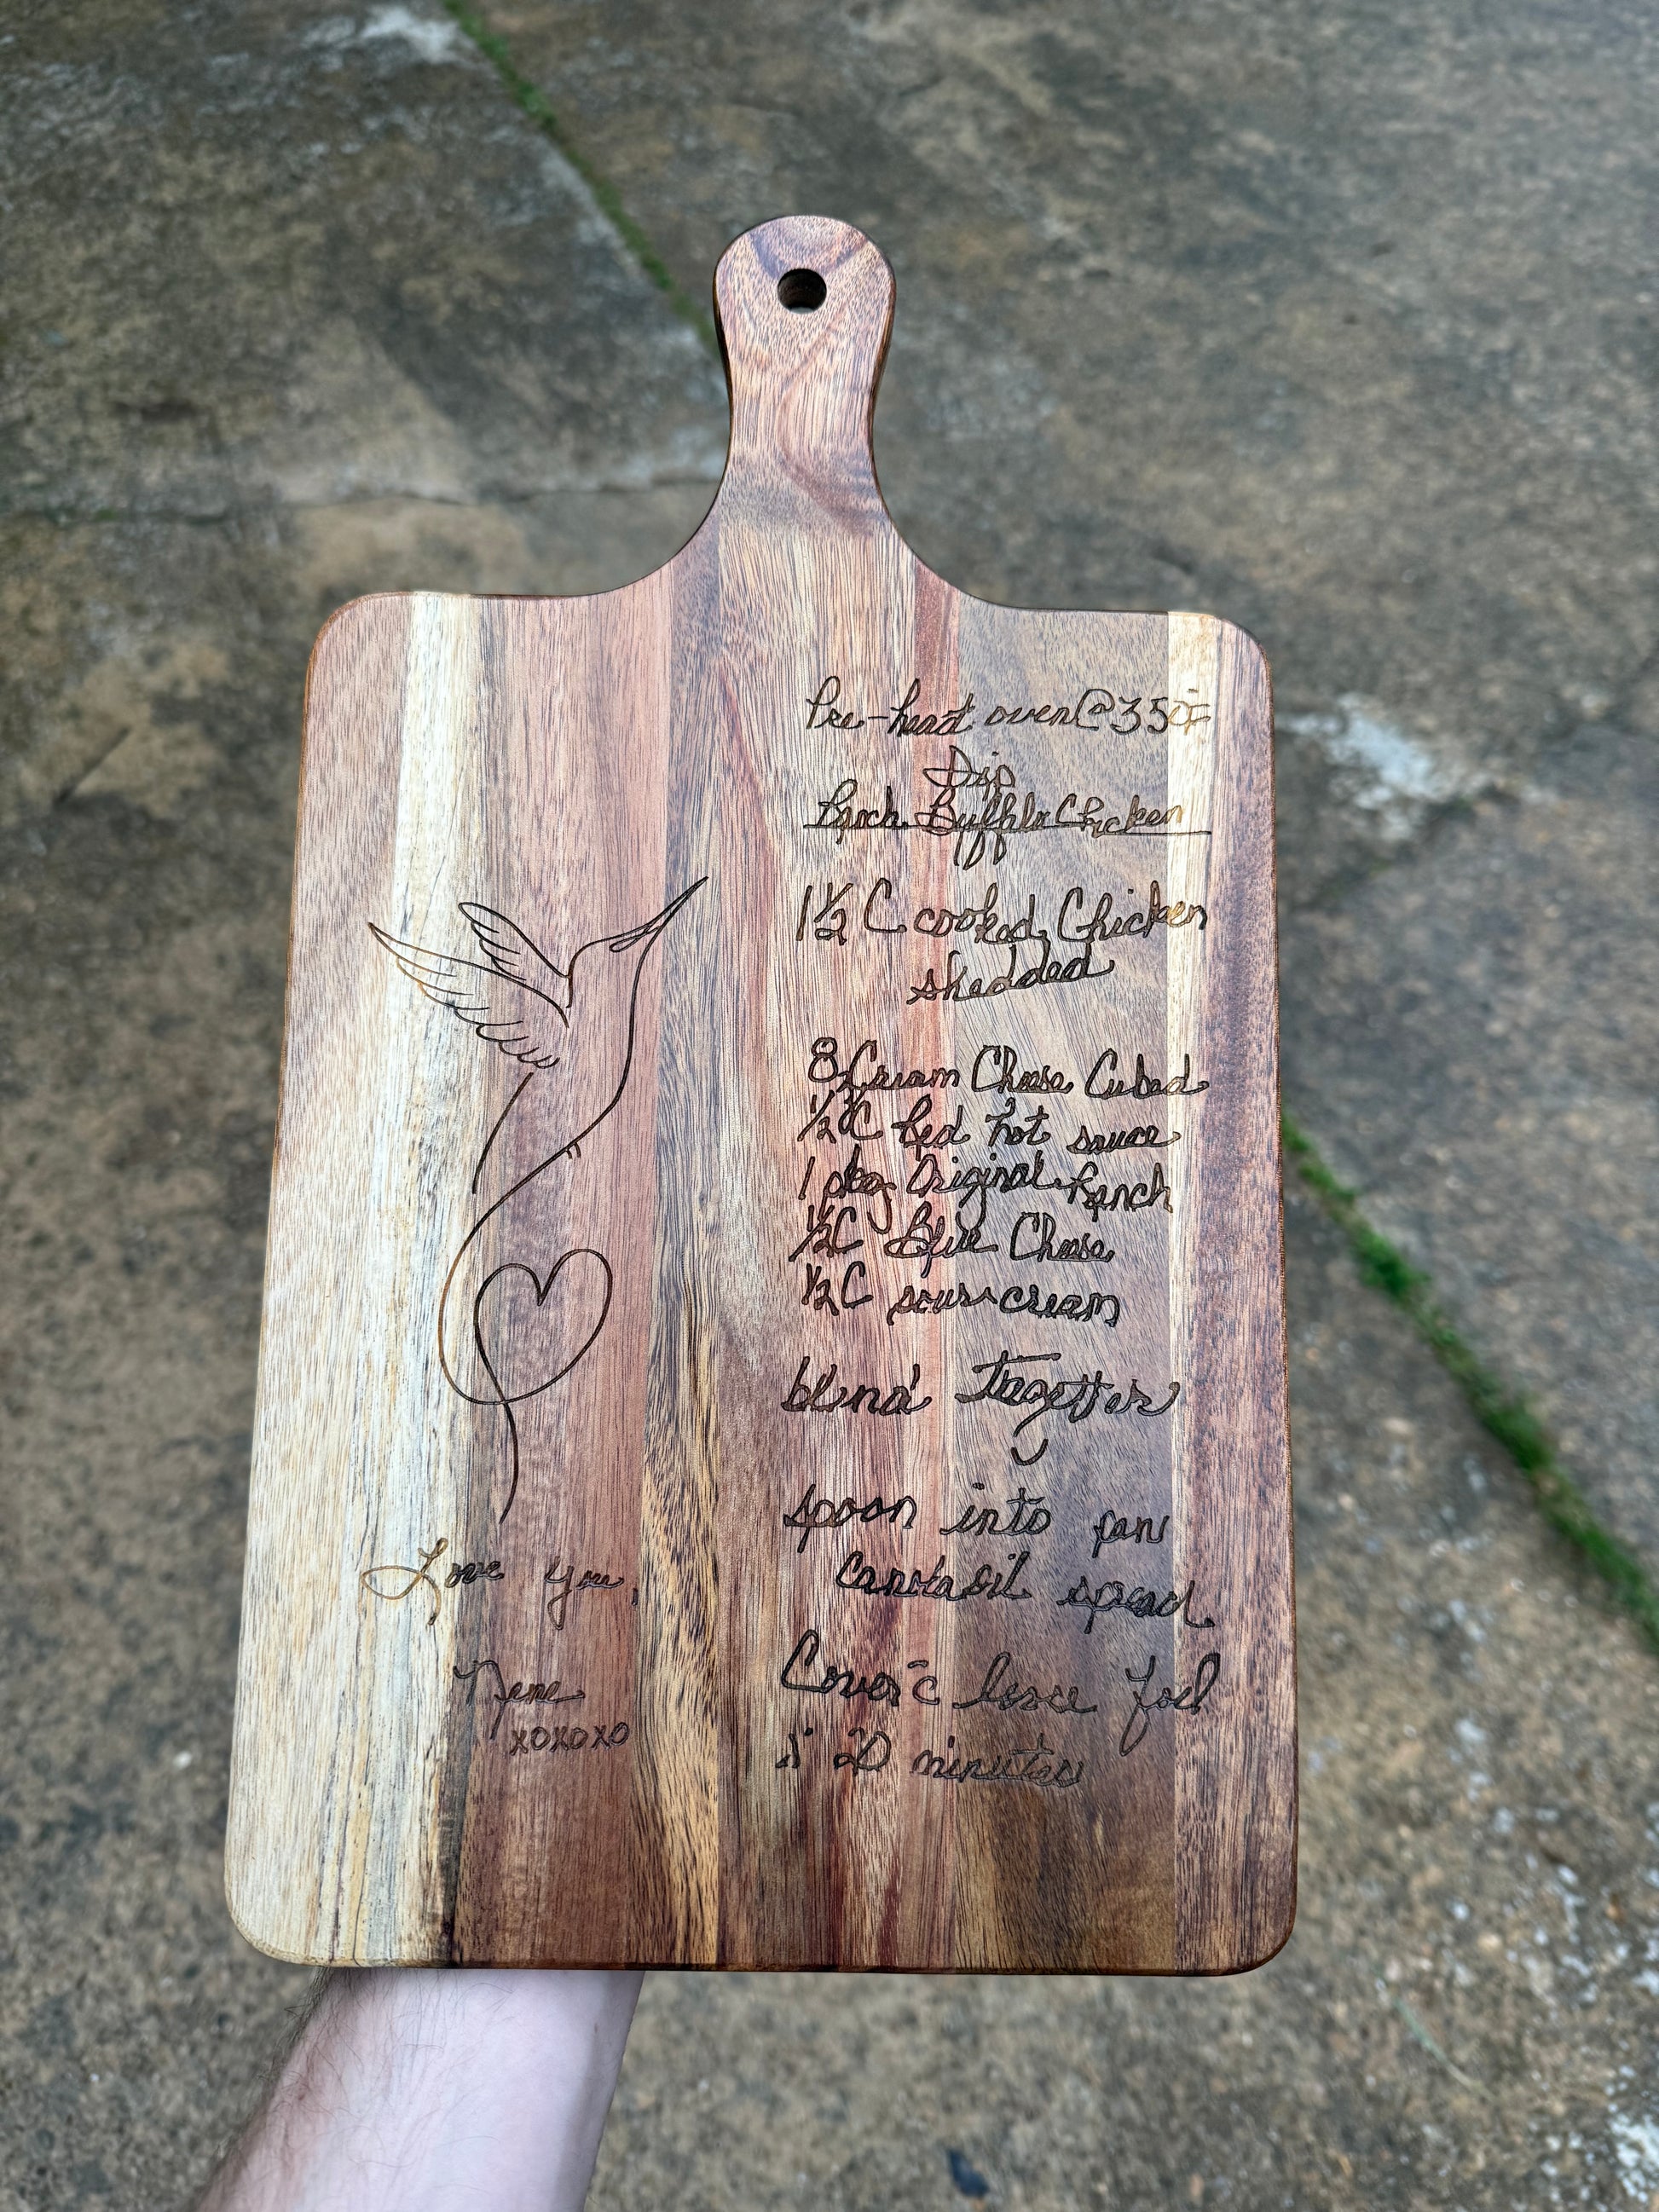 Pre-heat oven @ 350F
Dip
Ranch Buffalo Chicken
1 1/2 C cooked Chicken
shedded
8 Cream Cheese Cubed
1/2 C Red hot sauce
1 pkg Original Ranch
1/2 C Blue Cheese
1/2 C sour cream
blend together
spoon into pan
Canola oil spread
Cover c̄ loose foil
20 minutes
Love you,
Nene
xoxoxo